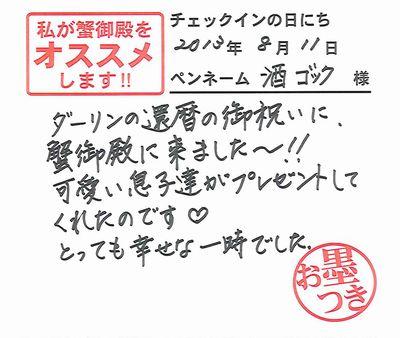 私が蟹御殿を
オススメ
します!!
チェックインの日にち
2013年 8月 11日
ペンネーム 酒ゴック 様
ダーリンの還暦の御祝いに、
蟹御殿に来ました〜!!
可愛い息子達がプレゼントして
くれたのです♡
とっても幸せな一時でした。
お墨つき